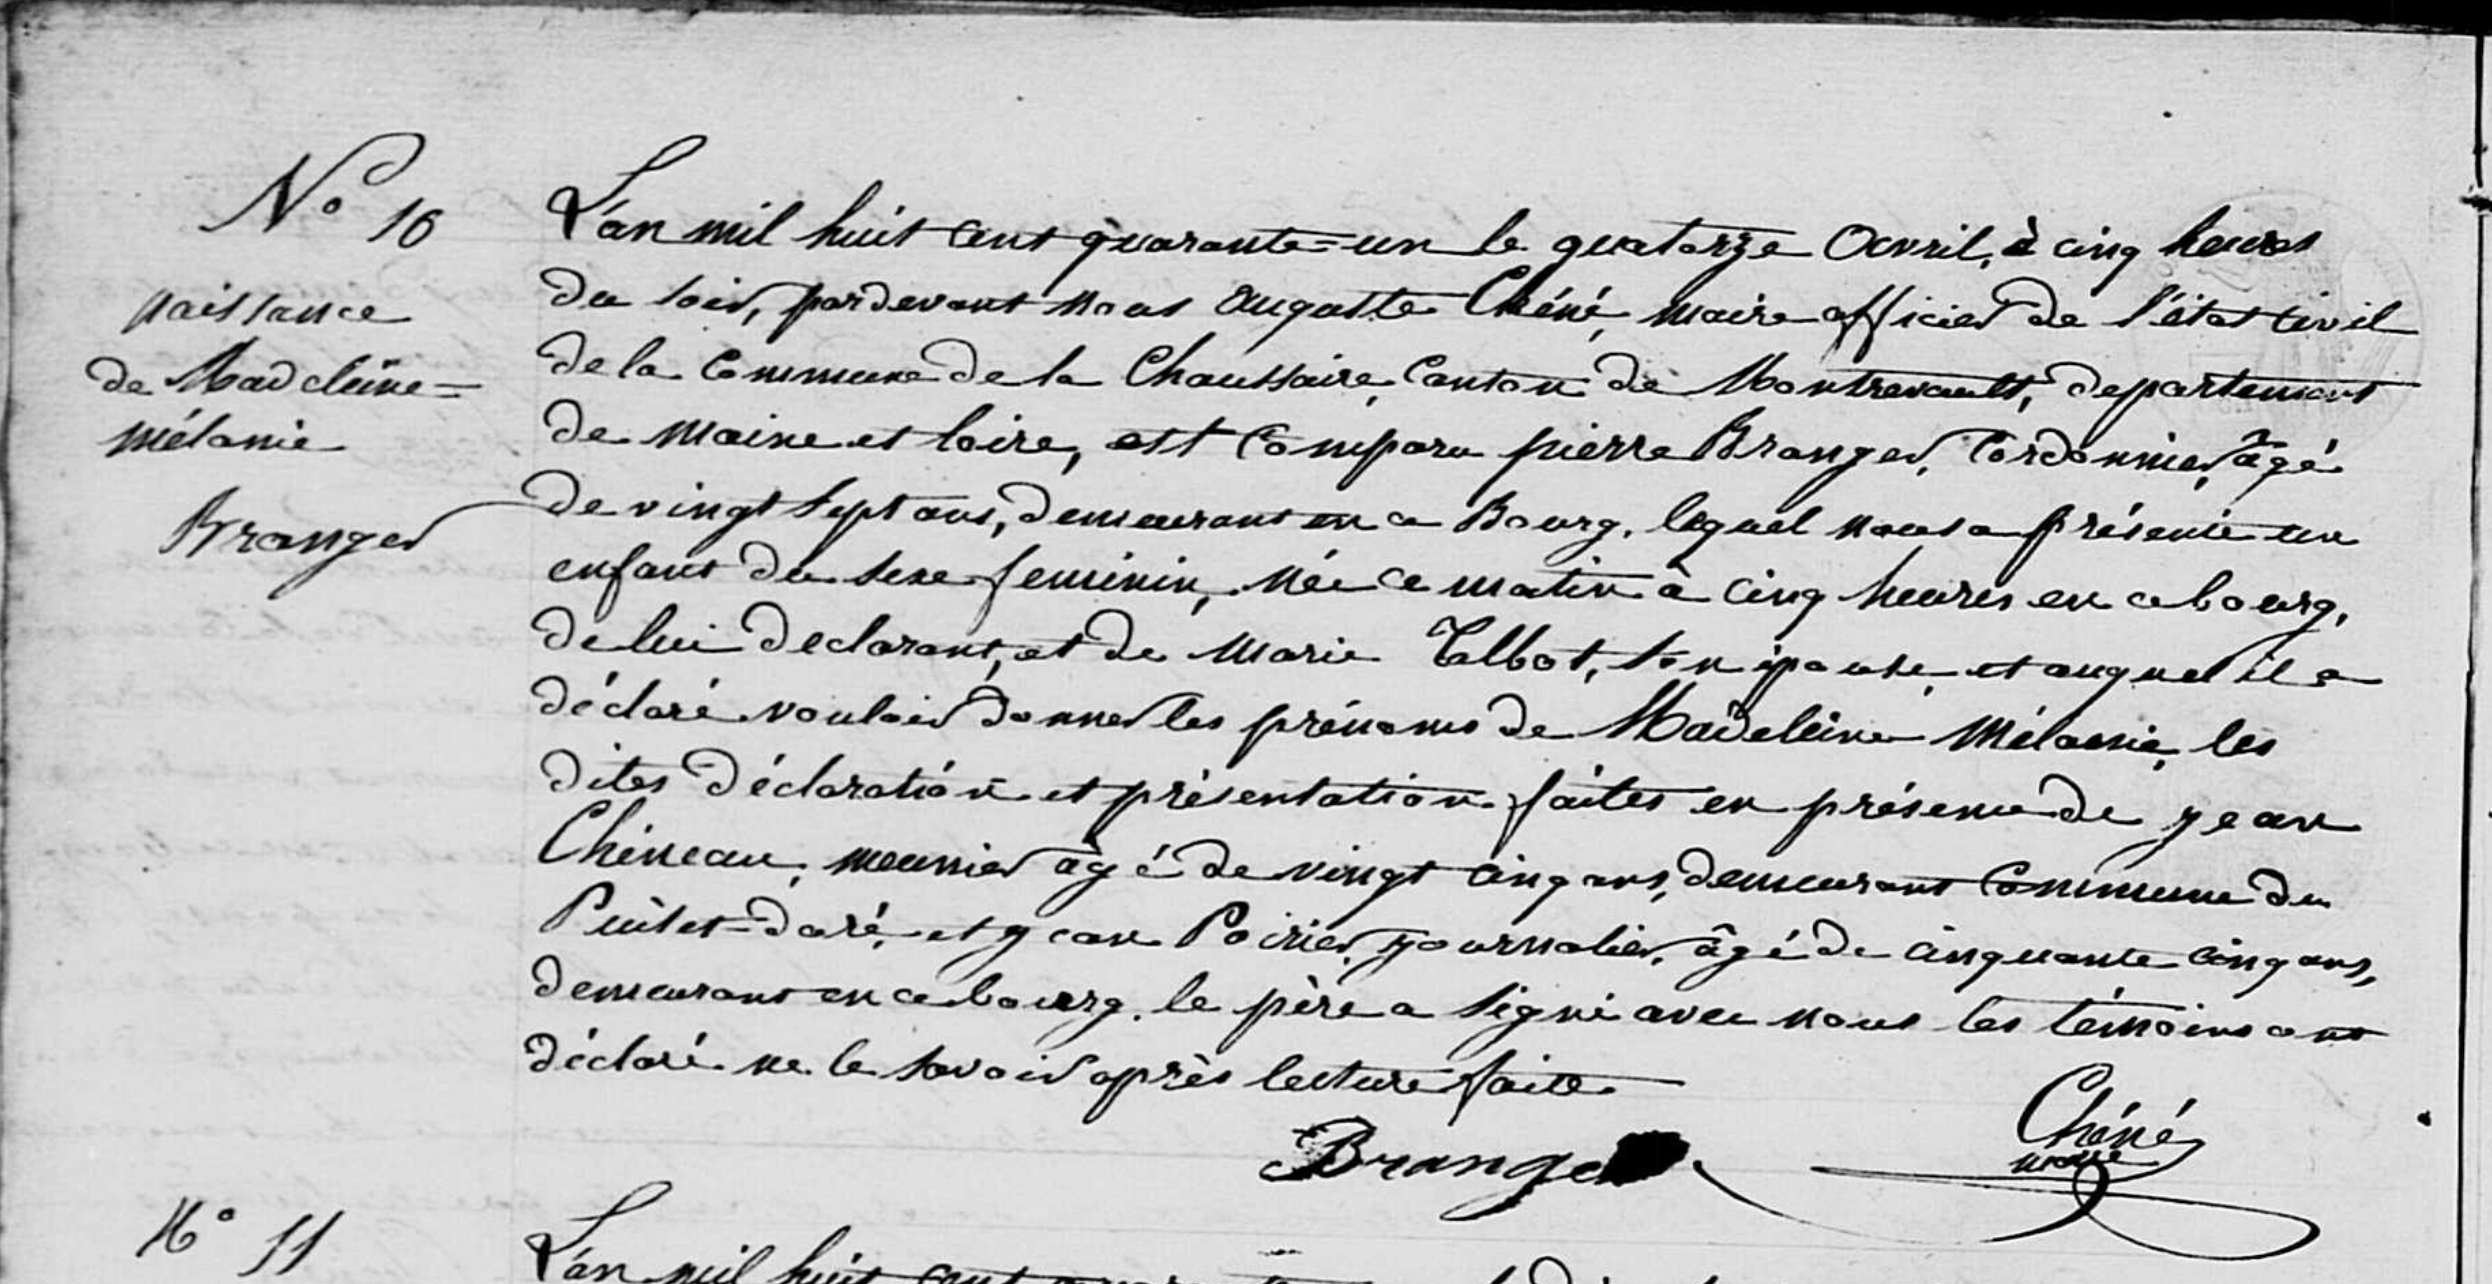 N° 10
naissance
de Madeleine=
mélanie
Branger
L'an mil huit cent quarante=un le quatorze Avril, à cinq heures
du soir, pardevant nous auguste Chéné, maire officier de l'état civil
de la Commune de la Chaussaire, Canton de Montrevault, departement
de maine et loire, est Comparu pierre Branger, Cordonnier, âgé
de vingt sept ans, demeurant en ce Bourg, lequel nous a présenté un
enfant du sexe feminin, née ce matin à cinq heures en ce bourg,
de lui declarant, et de marie Talbot, son épouse, et auquel il a
déclaré vouloir donner les prénoms de Madeleine Mélanie, les
dites déclaration et présentation faites en présence de jean
Chéneau, meunier âgé de vingt cinq ans, demeurant Commune du
Puiset=doré, et jean Poirier, journalier, âgé de cinquante cinq ans,
demeurant en ce bourg. le père a signé avec nous les témoins ont
déclaré ne le savoir après lecture faite
Branger
Chéné
maire
N° 11
L'an mil huit cent